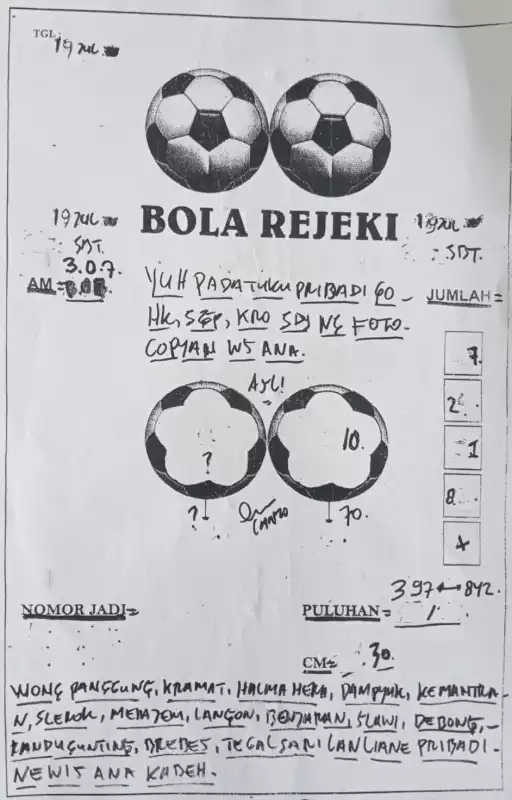 TGL:
19 JUL
BOLA REJEKI
19 JUL
SBT.
3.0.7.
AM =
19 JUL
: SBT.
JUMLAH =
YUH PADA TUKU PRIBADI GO-
HK, SGP, KRO SDY NG FOTO-
COPYAN WS ANA.
7.
2.
1
8
x
?
10.
?
70.
397↔842.
NOMOR JADI =
PULUHAN = 1
CM = 30.
WONG PANGGUNG, KRAMAT, HALMAHERA, DAMPYAK, KEMANTRA-
N, SLEROK, MEJASEM, LANGON, BENJARAN, SLAWI, DEBONG,-
RANDUGUNTING, BREBES, TEGALSARI LAN LIANE PRIBADI-
NE WIS ANA KABEH.